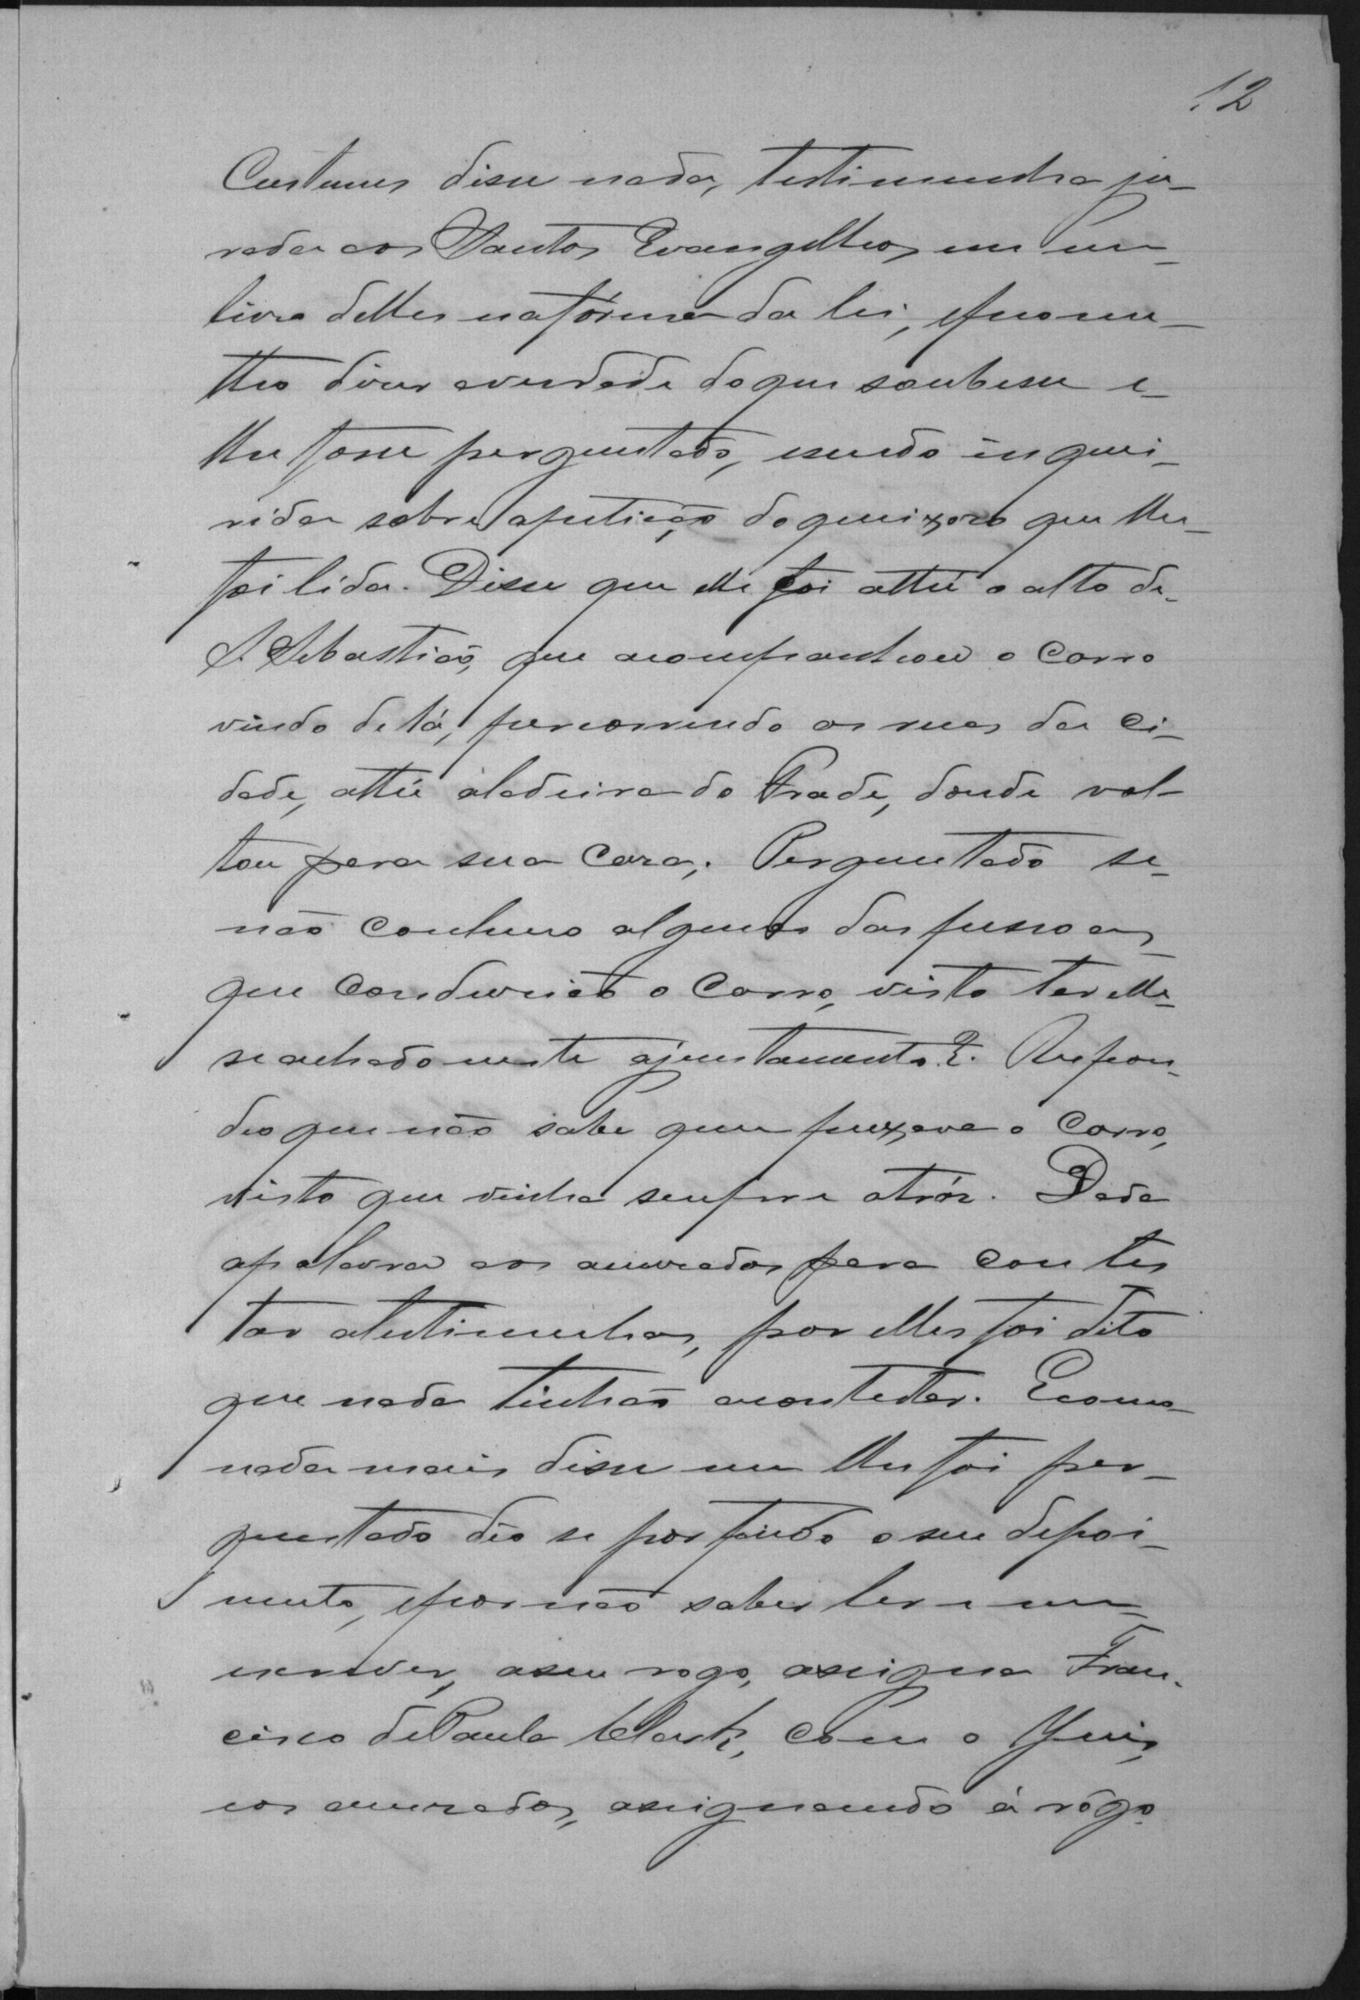 12
Custumes disse nada, testimunha ju-
rada aos Santos Evangelhos em um
livro delles na fórma da lei, e prome-
tteo dizer a verdade do que soubesse e
lhe fosse perguntado, e sendo inqueri-
rida sobre a petição do queixoso que lhe
foi lida. Disse que elle foi atthé o alto de
S. Sebastião, que acompanhou o carro
vindo de lá, percorrendo as ruas da ci-
dade, atthé a ladeira do Frade, donde vol-
tou para sua casa; Perguntado se
não conheceo alguas das pessoas
que conduzião o carro, visto ter elle
se achado neste ajuntamento?. Respon-
deo que não sabe quem puxava o carro,
visto que vinha sempre atráz. Dada
a palavra aos accusados para contes
tar a testimunha, por elles foi dito
que nada tinhão a contestar. E como
nada mais disse nem lhe foi per-
guntado deo se por findo o seu depoi-
mento, e por não saber ler e nem
escrever, a seu rogo, assigna Fran-
cisco de Paula Clark, com o Juis,
e os accusados, assignando á rôgo